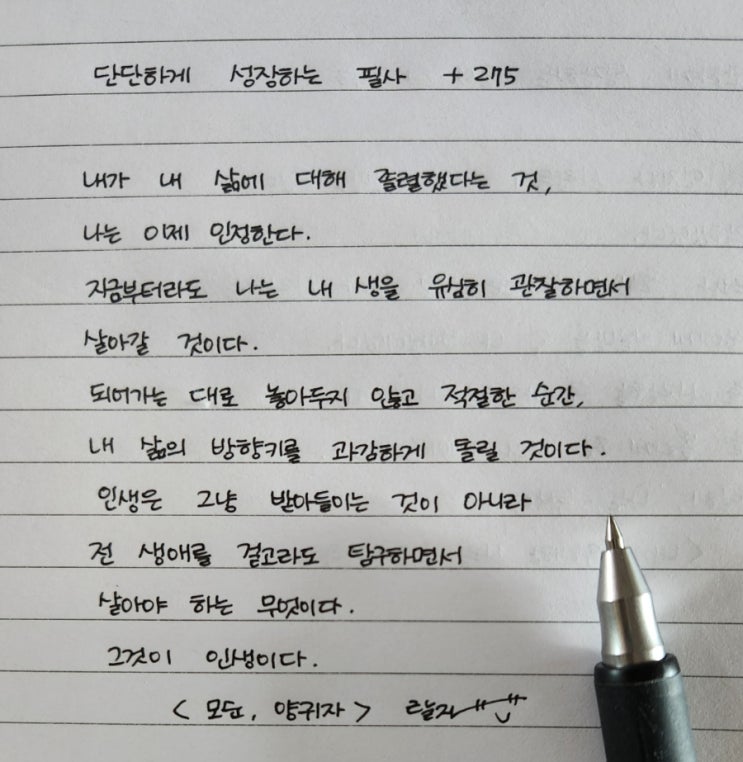 단단하게 성장하는 필사 + 275
내가 내 삶에 대해 졸렬했다는 것,
나는 이제 인정한다.
지금부터라도 나는 내 생을 유심히 관찰하면서
살아갈 것이다.
되어가는 대로 놓아두지 않고 적절한 순간,
내 삶의 방향키를 과감하게 돌릴 것이다.
인생은 그냥 받아들이는 것이 아니라
전 생애를 걸고라도 탐구하면서
살아야 하는 무엇이다.
그것이 인생이다.
< 모순, 양귀자 >